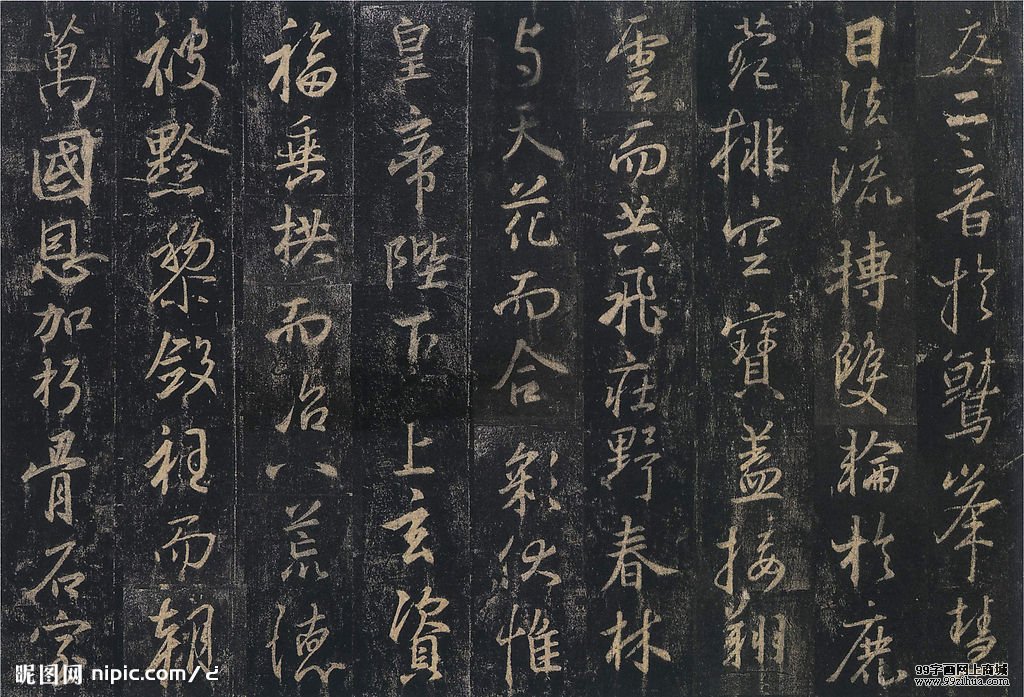 交二音於鷲峯慧
日法流轉雙輪於鹿
菀排空寶蓋接翔
雲而共飛庄野春林
与天花而合彩伏惟
皇帝陛下上玄資
福垂拱而治八荒德
被黔黎斂衽而朝
萬國恩加朽骨石室
昵图网 nipic.com/
99字画网上商城
www.99zihua.com